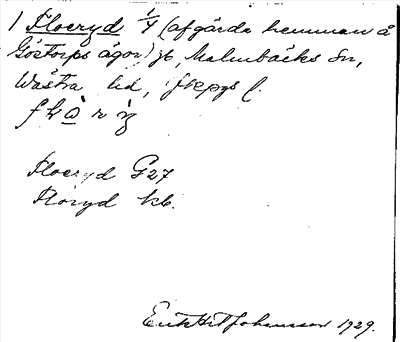 1 Floeryd 1/4 (afgärda hemman å
Göstorps ägor) jb, Malmbäcks Sn,
Wästra hd,
Floeryd G27
Floryd kb.
Johansson 1929.